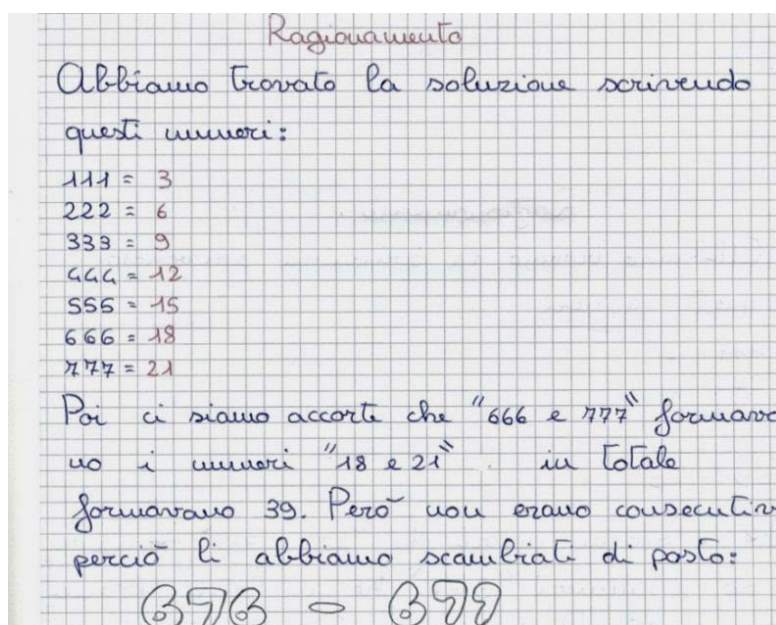 Ragionamento
Abbiamo trovato la soluzione scrivendo
questi numeri:
111 = 3
222 = 6
333 = 9
444 = 12
555 = 15
666 = 18
777 = 21
Poi ci siamo accorte che "666 e 777" formava
no i numeri "18 e 21". in totale
formavano 39. Però non erano consecutiv
perciò li abbiamo scambiati di posto:
676 - 677